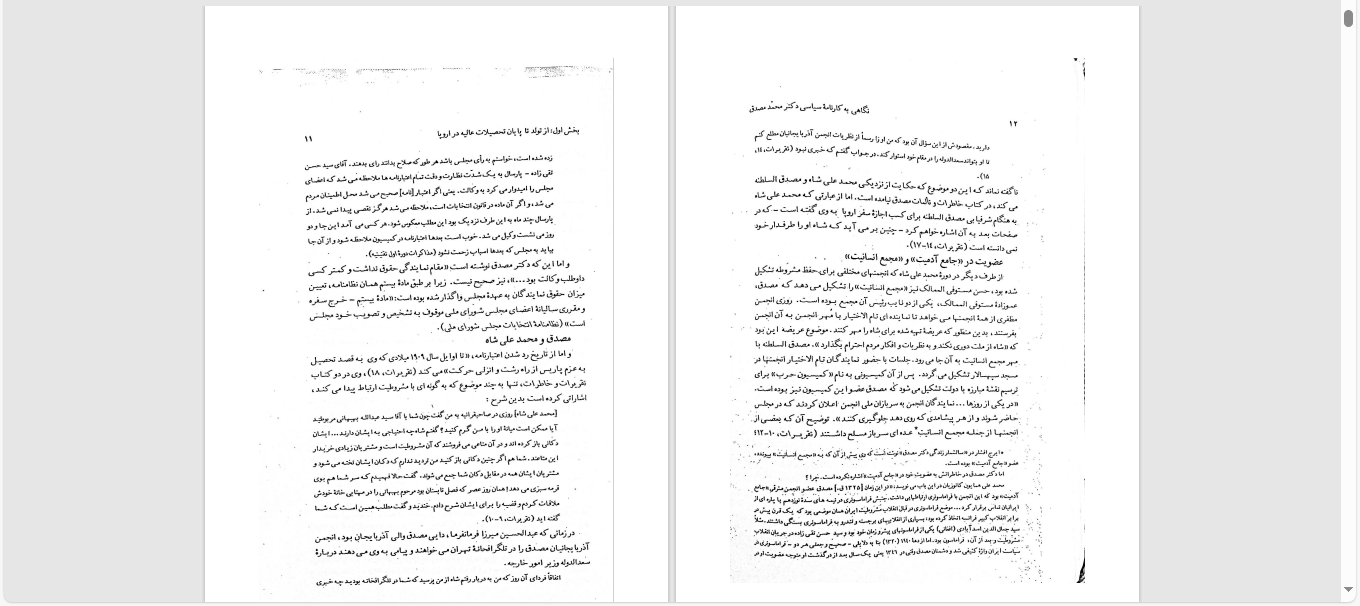 بخش اول: از تولد تا پایان تحصیلات عالیه در اروپا
۱۱
زده شده است، خواستم به رأی مجلس باشد هر طور که صلاح بدانند رای بدهند. آقای سید حسن
تقی زاده - پارسال به یک شدّت نظارت و دقت تمام اعتبارنامه ها ملاحظه می شد که اعضای
مجلس را امیدوار می کرد به وکالت. یعنی اگر اعتبار [نامه] صحیح می شد محل اطمینان مردم
می شد، و اگر آن ماده در قانون انتخابات است، ملاحظه می شد هرگز نقصی پیدا نمی شد. از
پارسال چند ماه به این طرف نزدیک بود این مطلب معکوس شود. هر کسی می آمد این جا و دو
روز می نشست وکیل می شد. خوب است بعدها اعتبارنامه در کمیسیون ملاحظه شود و از آن جا
بیاید به مجلس که بعدها اسباب زحمت نشود (مذاکرات دورهٔ اول تقنینیه).
و اما این که دکتر مصدق نوشته است «مقام نمایندگی حقوق نداشت و کمتر کسی
داوطلب وکالت بود...»، نیز صحیح نیست. زیرا بر طبق مادهٔ بیستم همان نظامنامه، تعیین
میزان حقوق نمایندگان به عهدهٔ مجلس واگذار شده بوده است: «مادهٔ بیستم - خرج سفره
و مقرری سالیانهٔ اعضای مجلس شورای ملی موقوف به تشخیص و تصویب خود مجلس
است» (نظامنامهٔ انتخابات مجلس شورای ملی).
مصدق و محمد علی شاه
و اما از تاریخ رد شدن اعتبارنامه، «تا اوایل سال ۱۹۰۹ میلادی که وی به قصد تحصیل
به عزم پاریس از راه رشت و انزلی حرکت» می کند (تقریرات، ۱۸)، وی در دو کتاب
تقریرات و خاطرات، تنها به چند موضوع که به گونه ای با مشروطیت ارتباط پیدا می کند،
اشاراتی کرده است بدین شرح:
[محمد علی شاه] روزی در صاحبقرانیه به من گفت چون شما با آقا سید عبدالله بهبهانی مربوطید
آیا ممکن است میانهٔ او را با من گرم کنید؟ گفتم شاه چه احتیاجی به ایشان دارند... ایشان
دکانی باز کرده اند و در آن متاعی می فروشند که آن مشروطیت است و مشتریان زیادی خریدار
این متاعند. شما هم اگر چنین دکانی باز کنید من تردید ندارم که دکان ایشان تخته می شود و
مشتریان ایشان همه در مقابل دکان شما جمع می شوند. گفت حالا فهمیدم که سر شما هم بوی
قرمه سبزی می دهد! همان روز عصر که فصل تابستان بود مرحوم بهبهانی را در مهتابی خانهٔ خودش
ملاقات کردم و قضیه را برای ایشان شرح دادم. خندید و گفت مطلب همین است که شما
گفته اید (تقریرات، ۹-۱۰).
در زمانی که عبدالحسین میرزا فرمانفرما، دایی مصدق والی آذربایجان بود، انجمن
آذربایجانیان مصدق را در تلگرافخانهٔ تهران می خواهند و پیامی به وی می دهند دربارهٔ
سعدالدوله وزیر امور خارجه.
اتفاقاً فردای آن روز که من به دربار رفتم شاه از من پرسید که شما در تلگرافخانه بودید چه خبری
نگاهی به کارنامهٔ سیاسی دکتر محمّد مصدق
۱۲
دارید. مقصودش از این سؤال آن بود که من او را رسماً از نظریات انجمن آذربایجانیان مطلع کنم
تا او بتواند سعدالدوله را در مقام خود استوار کند. در جواب گفتم که خبری نبود (تقریرات، ۱۴،
۱۵).
ناگفته نماند که این دو موضوع که حکایت از نزدیکی محمد علی شاه و مصدق السلطنه
می کند، در کتاب خاطرات و تألمات مصدق نیامده است. اما از عبارتی که محمد علی شاه
به هنگام شرفیابی مصدق السلطنه برای کسب اجازهٔ سفر اروپا به وی گفته است - که در
صفحات بعد به آن اشاره خواهم کرد - چنین بر می آید که شاه او را طرفدار خود
نمی دانسته است (تقریرات، ۱۴-۱۷).
عضویت در «جامع آدمیت» و «مجمع انسانیت»
از طرف دیگر در دورهٔ محمد علی شاه که انجمنهای مختلفی برای حفظ مشروطه تشکیل
شده بود، حسن مستوفی الممالک نیز «مجمع انسانیت» را تشکیل می دهد که مصدق،
عموزادهٔ مستوفی الممالک، یکی از دو نایب رئیس آن مجمع بوده است. روزی انجمن
مظفری از همهٔ انجمنها می خواهد تا نماینده ای تام الاختیار با مُهر انجمن به آن انجمن
بفرستند، بدین منظور که عریضهٔ تهیه شده برای شاه را مهر کنند. موضوع عریضه این بود
که «شاه از ملت دوری نکند و به نظریات و افکار مردم احترام بگذارد». مصدق السلطنه با
مهر مجمع انسانیت به آن جا می رود. جلسات با حضور نمایندگان تام الاختیار انجمنها در
مسجد سپهسالار تشکیل می گردد. پس از آن کمیسیونی به نام «کمیسیون حرب» برای
ترسیم نقشهٔ مبارزه با دولت تشکیل می شود که مصدق عضو این کمیسیون نیز بوده است.
«در یکی از روزها ... نمایندگان انجمن به سربازان ملی انجمن اعلان کردند که در مجلس
حاضر شوند و از هر پیشامدی که روی دهد جلوگیری کنند». توضیح آن که بعضی از
انجمنها از جمله مجمع انسانیت* عده ای سرباز مسلح داشتند (تقریرات، ۱۰-۱۲؛
* ایرج افشار در «سالشمار زندگی دکتر مصدق» نوشته است که وی پیش از آن که به «مجمع انسانیت» بپیوندد،
عضو «جامع آدمیت» بوده است.
اما دکتر مصدق در خاطراتش به عضویت خود در «جامع آدمیت» اشاره نکرده است. چرا؟
محمد علی همایون کاتوزیان در این باب می نویسد: «در این زمان [۱۳۲۵ ق.] مصدق عضو انجمن مترقی «جامع
آدمیت» بود که این انجمن با فراماسونری ارتباطهایی داشت. جنبش فراماسونری در نیمه های سدهٔ نوزدهم با پاره ای از
ایرانیان تماس برقرار کرد... موضع فراماسونری در قبال انقلاب مشروطیت ایران همان موضعی بود که یک قرن پیش در
برابر انقلاب کبیر فرانسه اتخاذ کرده بود: بسیاری از انقلابیهای برجسته و تندرو به فراماسونری بستگی داشتند. مثلاً
سید جمال الدین اسدآبادی (افغانی) یکی از فراماسونهای پیشرو زمان خود بود و سید حسن تقی زاده در جریان انقلاب
مشروطیت و بعد از آن، فراماسون بود. اما از دههٔ ۱۹۴۰ (۱۳۲۰) بنا به دلایلی - صحیح و جعلی هر دو - فراماسونری در
سیاست ایران واژهٔ کثیفی شد و دشمنان مصدق وقتی در ۱۳۴۶ یعنی یک سال بعد از درگذشت او متوجه عضویت او در